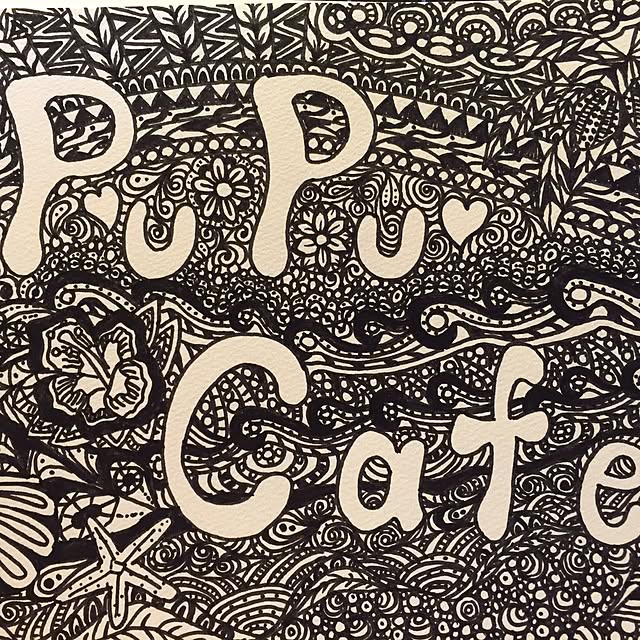 PuPu
Cafe